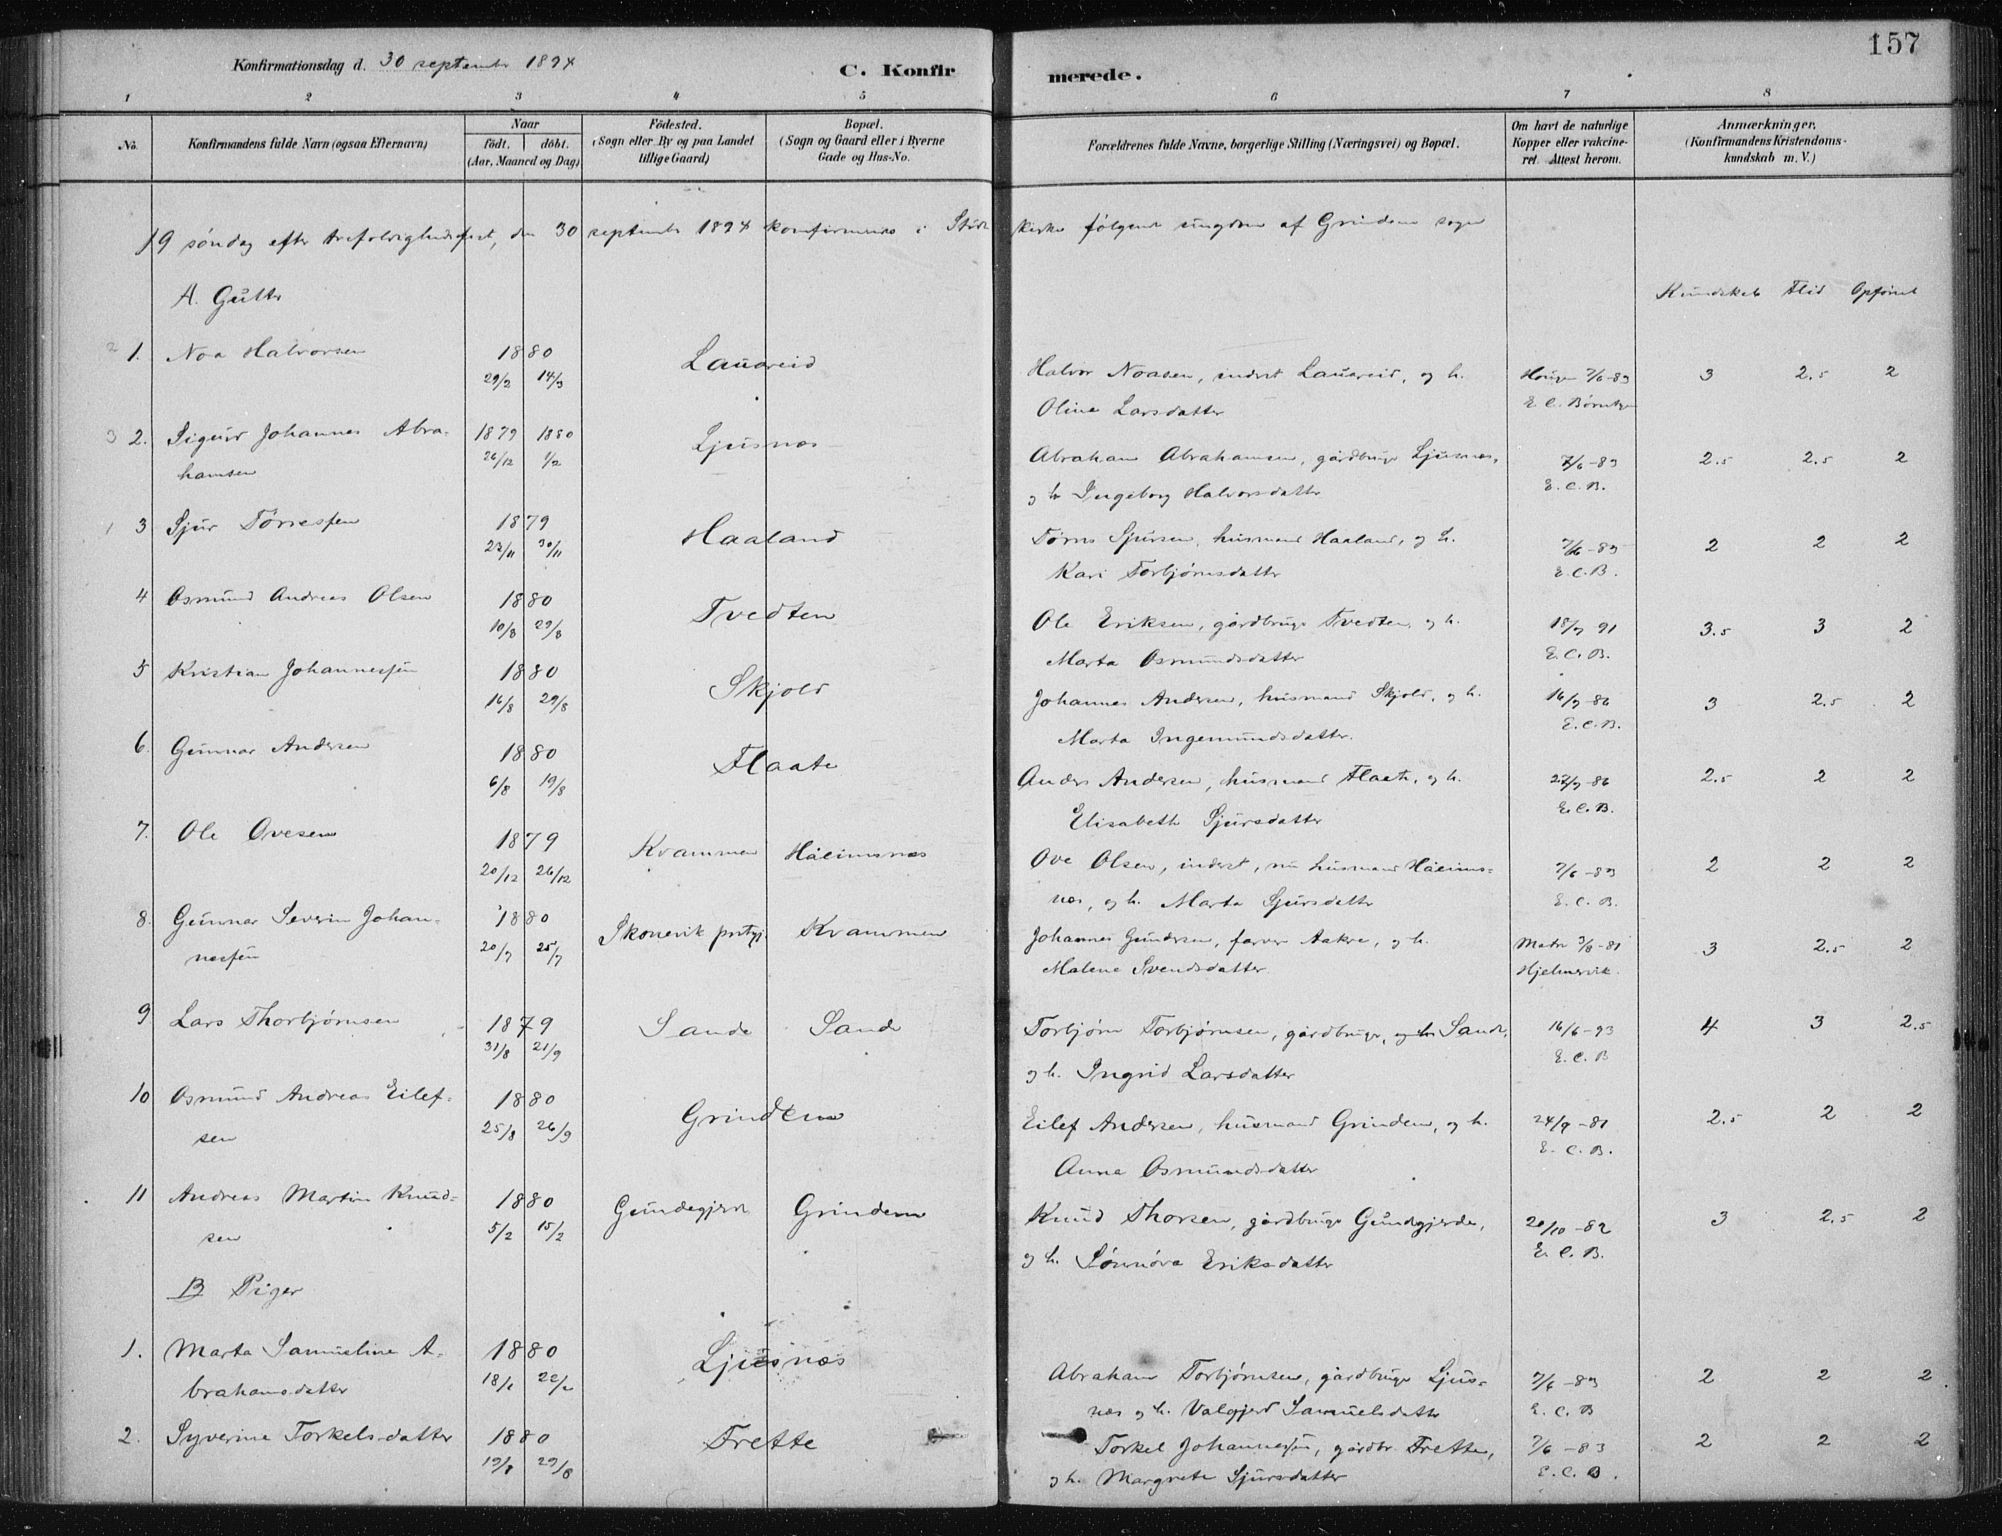 157
Konfirmationsdag d. 30 september 1894
C. Konfirmerede.
1 2 3 4 5 6 7 8
No.
Konfirmandens fulde Navn (ogsaa Efternavn)
Naar
födt. döbt.
(Aar, Maaned og Dag)
Födested.
(Sogn eller By og paa Landet
tillige Gaard)
Bopæl.
(Sogn og Gaard eller i Byerne
Gade og Hus-No.
Forældrenes fulde Navne, borgerlige Stilling (Næringsvei) og Bopæl.
Om havt de naturlige
Kopper eller vakcine-
ret. Attest herom.
Anmærkninger.
(Konfirmandens Kristendoms-
kundskab m. V.)
19 søndag efter trefoldighedsfest, den 30 september 1894 konfirmeres i kirke følgende ungdom af Grindem sogn
A. Gutter
Kundskab Flid Opførsel
1. Noa Halvorsen 1880 29/2 14/3 Lauareid
Halvor Noasen, inderst Lauareid, og h.
Olina Larsdatter
7/6-83
E. C. 
3 2.5 2
2. Sigurd Johannes Abra-
hamsen 1879 1880 26/12 1/2 Ljusnæs
Abraham Abrahamsen, gårdbruger Ljusnæs,
og h. Ingeborg Halvorsdatter
7/6-83
E. C. B.
2.5 2.5 2
3 Sjur Tørressen 1879 23/11 30/11 Haaland
Tørres Sjursen, husmand Haaland, og h.
Kari Torbjørnsdatter
7/6-83
E. C. B.
2 2 2
4 Osmund Andreas Olsen 1880 10/8 29/8 Tvedten
Ole Eriksen, gårdbruger Tvedten, og h.
Marta Osmundsdatter
18/9 91
E. C. B.
3.5 3 2
5 Kristian Johannessen 1880 16/8 29/8 Skjold
Johannes Andersen, husmand Skjold, og h.
Marta Ingemundsdatter.
16/9-86
E. C. B.
3 2.5 2
6. Gunnar Andersen 1880 6/8 19/8 Flaate
Anders Andersen, husmand Flaate, og h.
Elisabeth Sjursdatter
27/9-86
E. C. B.
2.5 2 2
7. Ole Ovesen 1879 20/12 26/12 Kvammen Håeimsnæs
Ove Olsen, inderst, nu husmand Håeims-
næs, og h. Marta Sjursdatter
7/6-83
E. C. B.
2 2 2
8. Gunnar Severin Johan-
nessen 1880 20/7 25/7 Skonevik prstgj. Kvammen
Johannes Gundersen, farver Aakre, og h.
Malene Svendsdatter
3/8-81
3 2.5 2
9 Lars Thorbjørnsen 1879 31/8 21/9 Sande Sande
Torbjørn Torbjørnsen, gårdbruger, og h. Sande,
og h. Ingrid Larsdatter
16/6-93
E. C. B
4 3 2.5
10 Osmund Andreas Eilef-
sen 1880 25/8 26/9 Grindem
Eilef Andersen, husmand Grindem, og h.
Anna Osmundsdatter
24/9-81
E. C. B.
2.5 2 2
11 Andreas Martin Knud-
sen 1880 5/2 15/2 Gundegjerd Grindem
Knud Thorsen, gårdbruger Gundegjerde,
og h. Sønnøva Eriksdatter
20/10-82
E. C. B.
3 2.5 2
B Piger
1. Marta Samueline A-
brahamsdatter 1880 18/1 22/2 Ljusnæs
Abraham Torbjørnsen, gårdbruger Ljus-
næs og h. Valgjerd Samuelsdatter
7/6-83
E. C. B
2 2 2
2. Syverine Torkelsdatter 1880 19/8 29/8 Frette
Torkel Johannessen, gårdbr. Frette,
og h. Margrete Sjursdatter
7/6-83
E. C. B.
2 2 2